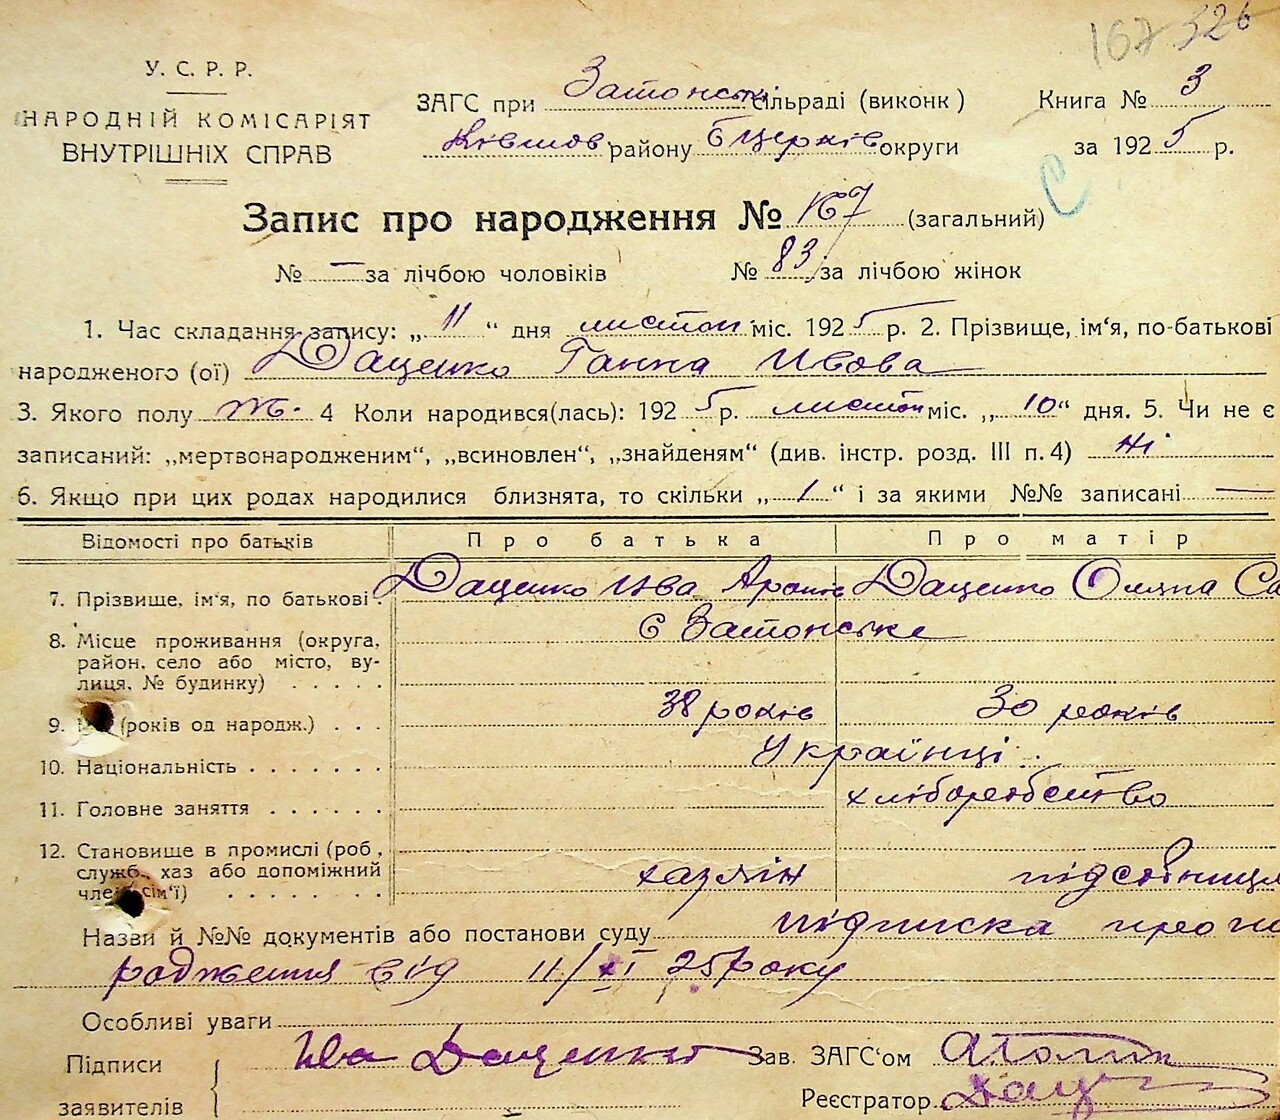 167 326
У. С. Р. Р.
НАРОДНІЙ КОМІСАРІЯТ
ВНУТРІШНІХ СПРАВ
ЗАГС при Затонські сільраді (виконк)
Ківшов району Бцерків округи
Книга № 3
за 1925 р.
Запис про народження № 167 (загальний)
№ — за лічбою чоловіків № 83 за лічбою жінок
1. Час складання запису: „ 11 “ дня листоп міс. 1925 р. 2. Прізвище, ім‘я, по-батькові
народженого (ої) Даценко Ганна Ивова
3. Якого полу ж. 4 Коли народився(лась): 1925 р. листоп міс. „ 10 “ дня. 5. Чи не є
записаний: „мертвонародженим“, „всиновлен“, „знайденям“ (див. інстр. розд. III п. 4) Ні
6. Якщо при цих родах народилися близнята, то скільки „ 1 “ і за якими №№ записані —
Відомості про батьків Про батька Про матір
7. Прізвище, ім‘я, по батькові. Даценко Ива Даценко Оляна
8. Місце проживання (округа, с Затонське
район, село або місто, ву-
лиця, № будинку) . . . . .
9. (років од народж.) . . . 38 років 30 років
10. Національність . . . . . . . Українці
11. Головне заняття . . . . . . хліборобство
12. Становище в промислі (роб,
служб., хаз або допоміжний хазяїн підсобниця
член сім‘ї) . . . . . . .
Назви й №№ документів або постанови суду підписка про на
родження від 11/XI 25 року
Особливі уваги
Підписи Ива Даценко Зав. ЗАГС‘ом
заявителів Реєстратор Дац